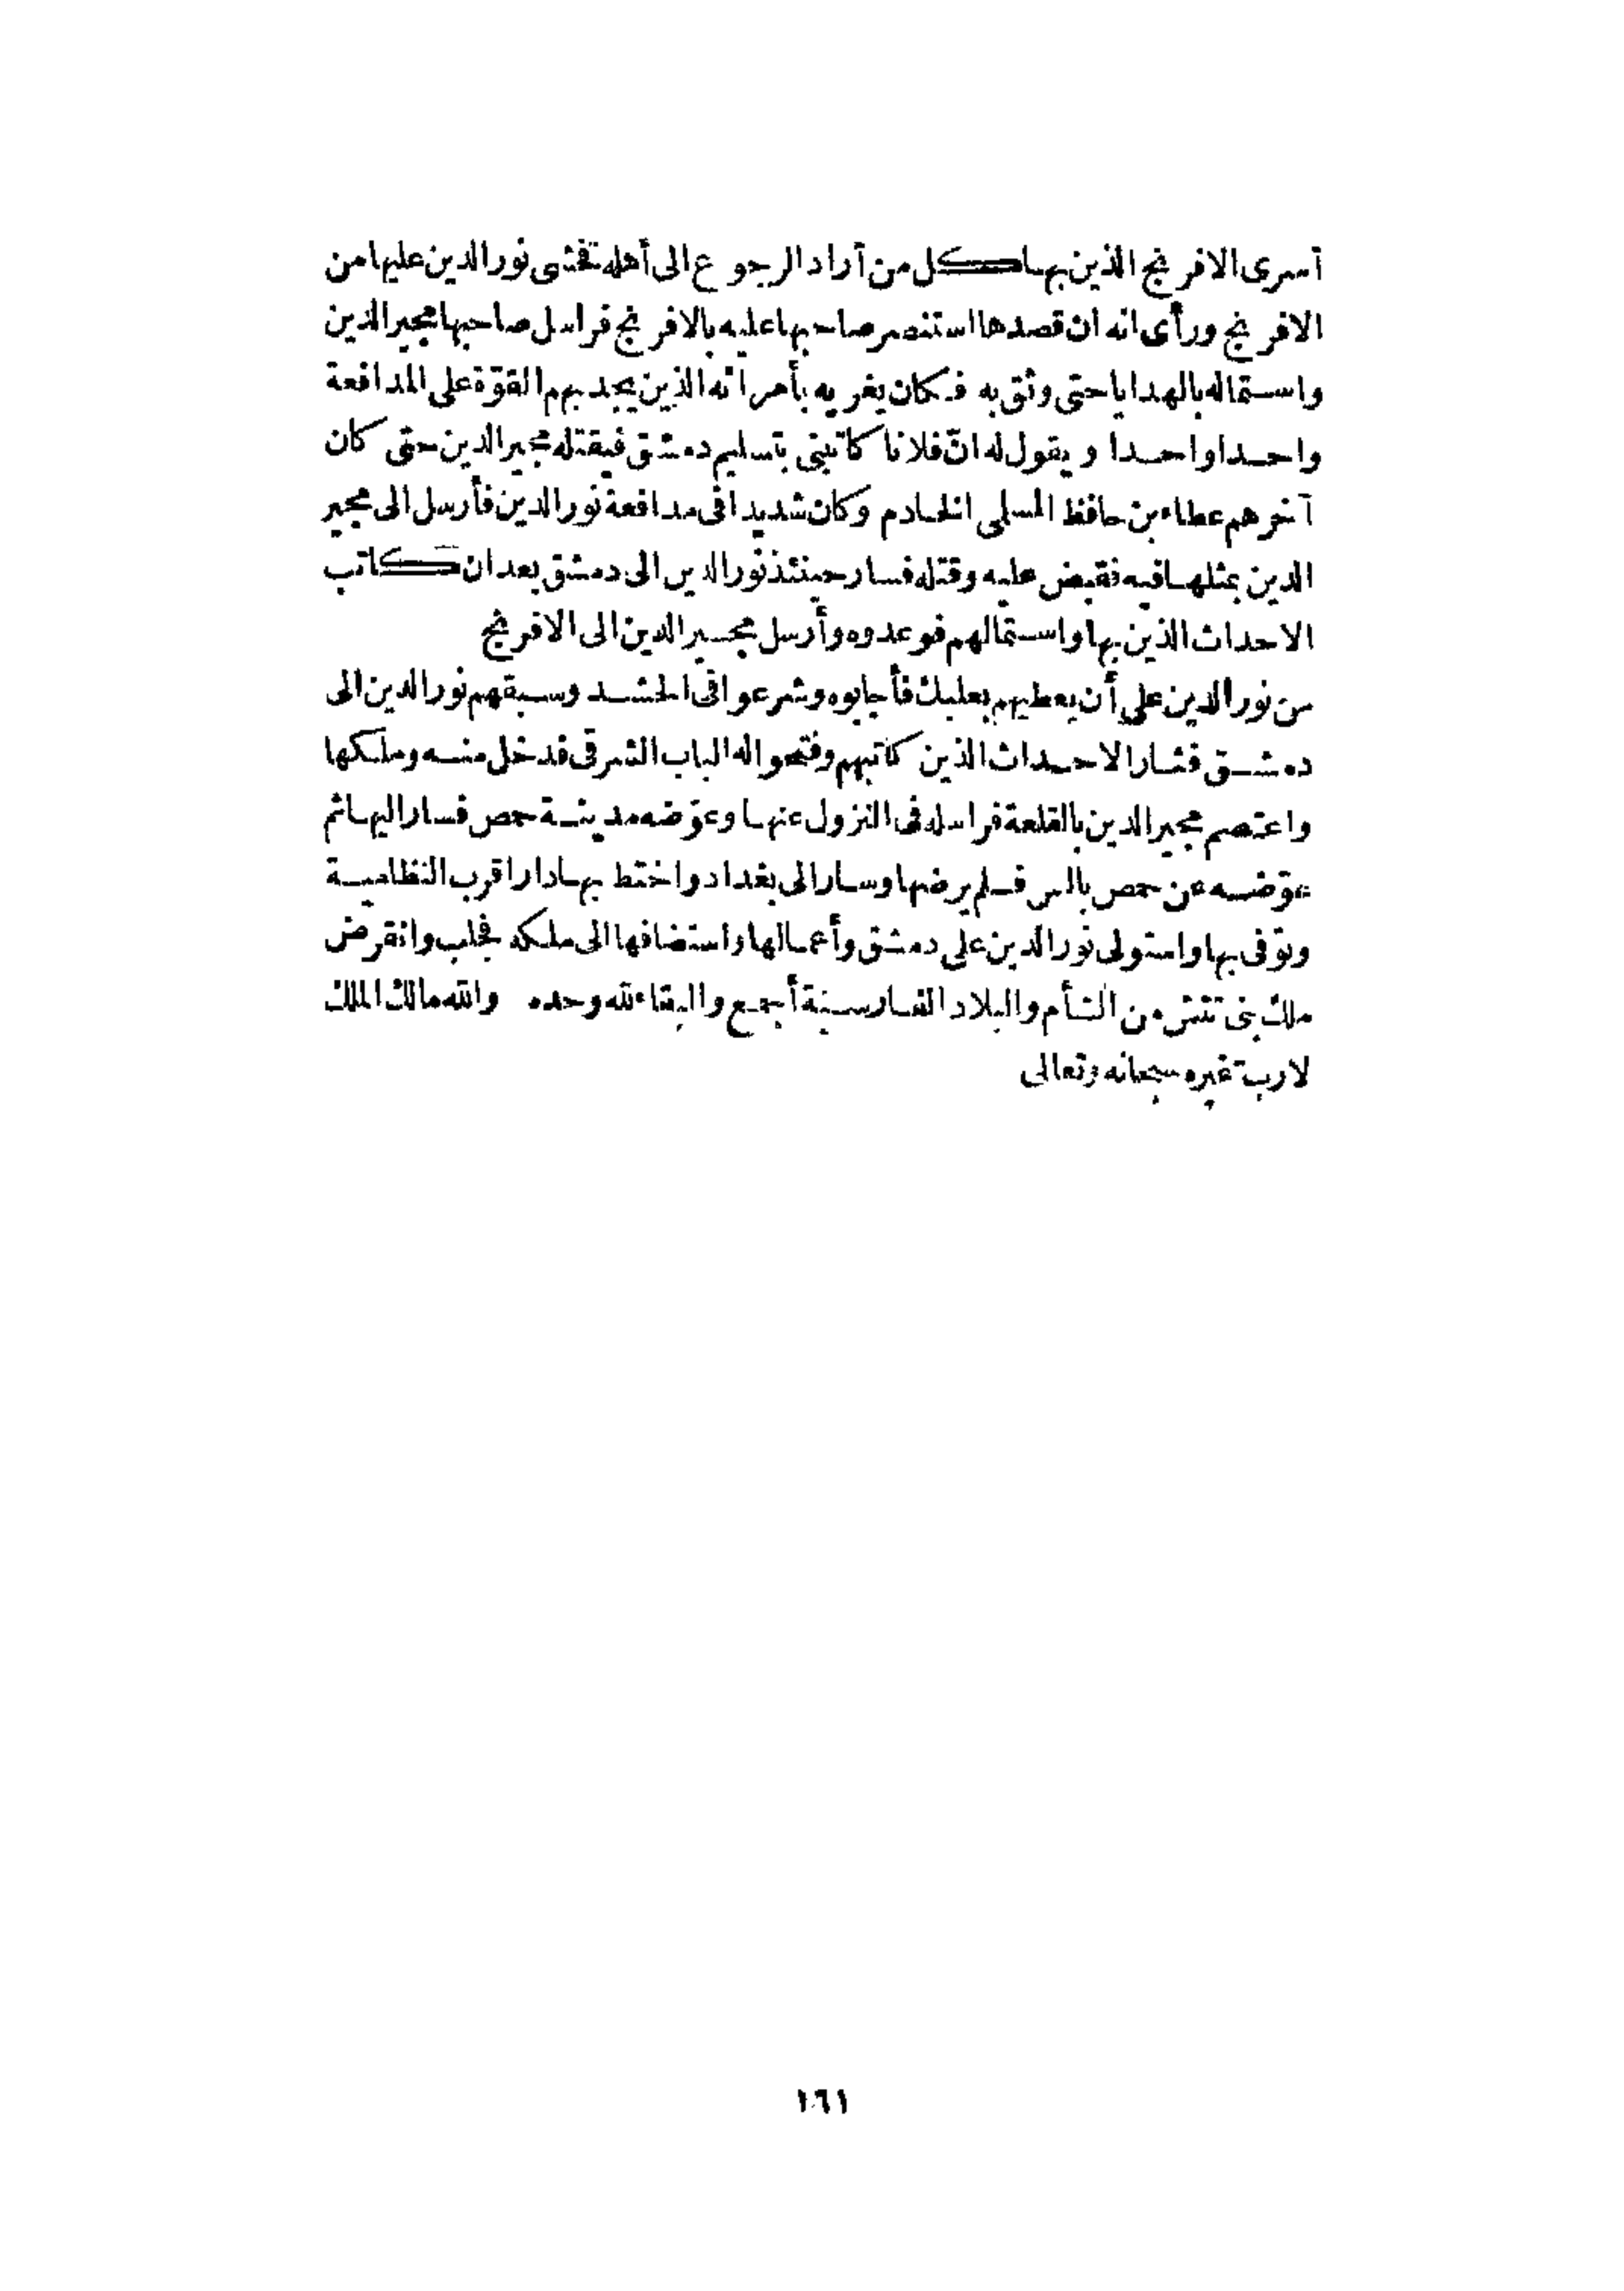 أسرى الافرنج الذين بها كل من أراد الرجوع الى أهله فخشى نور الدين عليها من
الافرنج ورأى انه ان قصدها استنصر صاحبها عليه بالافرنج فراسل صاحبها مجير الدين
واستماله بالهدايا حتى وثق به فكان يغريه بأمرائه الذين يجد بهم القوّة على المدافعة
واحدا واحدا ويقول له انّ فلانا كاتبنى بتسليم دمشق فيقتله مجير الدين حتى كان
آخرهم عطاء بن حافظ السلمى الخادم وكان شديدا فى مدافعة نور الدين فأرسل الى مجير
الدين بمثلها فيه فقبض عليه وقتله فسار حينئذ نور الدين الى دمشق بعد ان كاتب
الاحداث الذين بها واستمالهم فوعدوه وأرسل مجير الدين الى الافرنج
من نور الدين على أن يعطيهم بعلبك فأجابوه وشرعوا فى الحشد وسبقهم نور الدين الى
دمشق فثار الاحداث الذين كاتبهم وفتحوا له الباب الشرقى فدخل منه وملكها
واعتصم مجير الدين بالقلعة فراسله فى النزول عنها وعوّضه مدينة حمص فسار اليها ثم
عوّضه عن حمص بالس فلم يرضها وسار الى بغداد واختط بها دارا قرب النظامية
وتوفى بها واستولى نور الدين على دمشق وأعمالها واستضافها الى ملكه فى حلب وانقرض
ملك بنى تتش من الشأم والبلاد الفارسية أجمع والبقاء لله وحده والله مالك الملك
لا ربّ غيره سبحانه وتعالى
١٦١